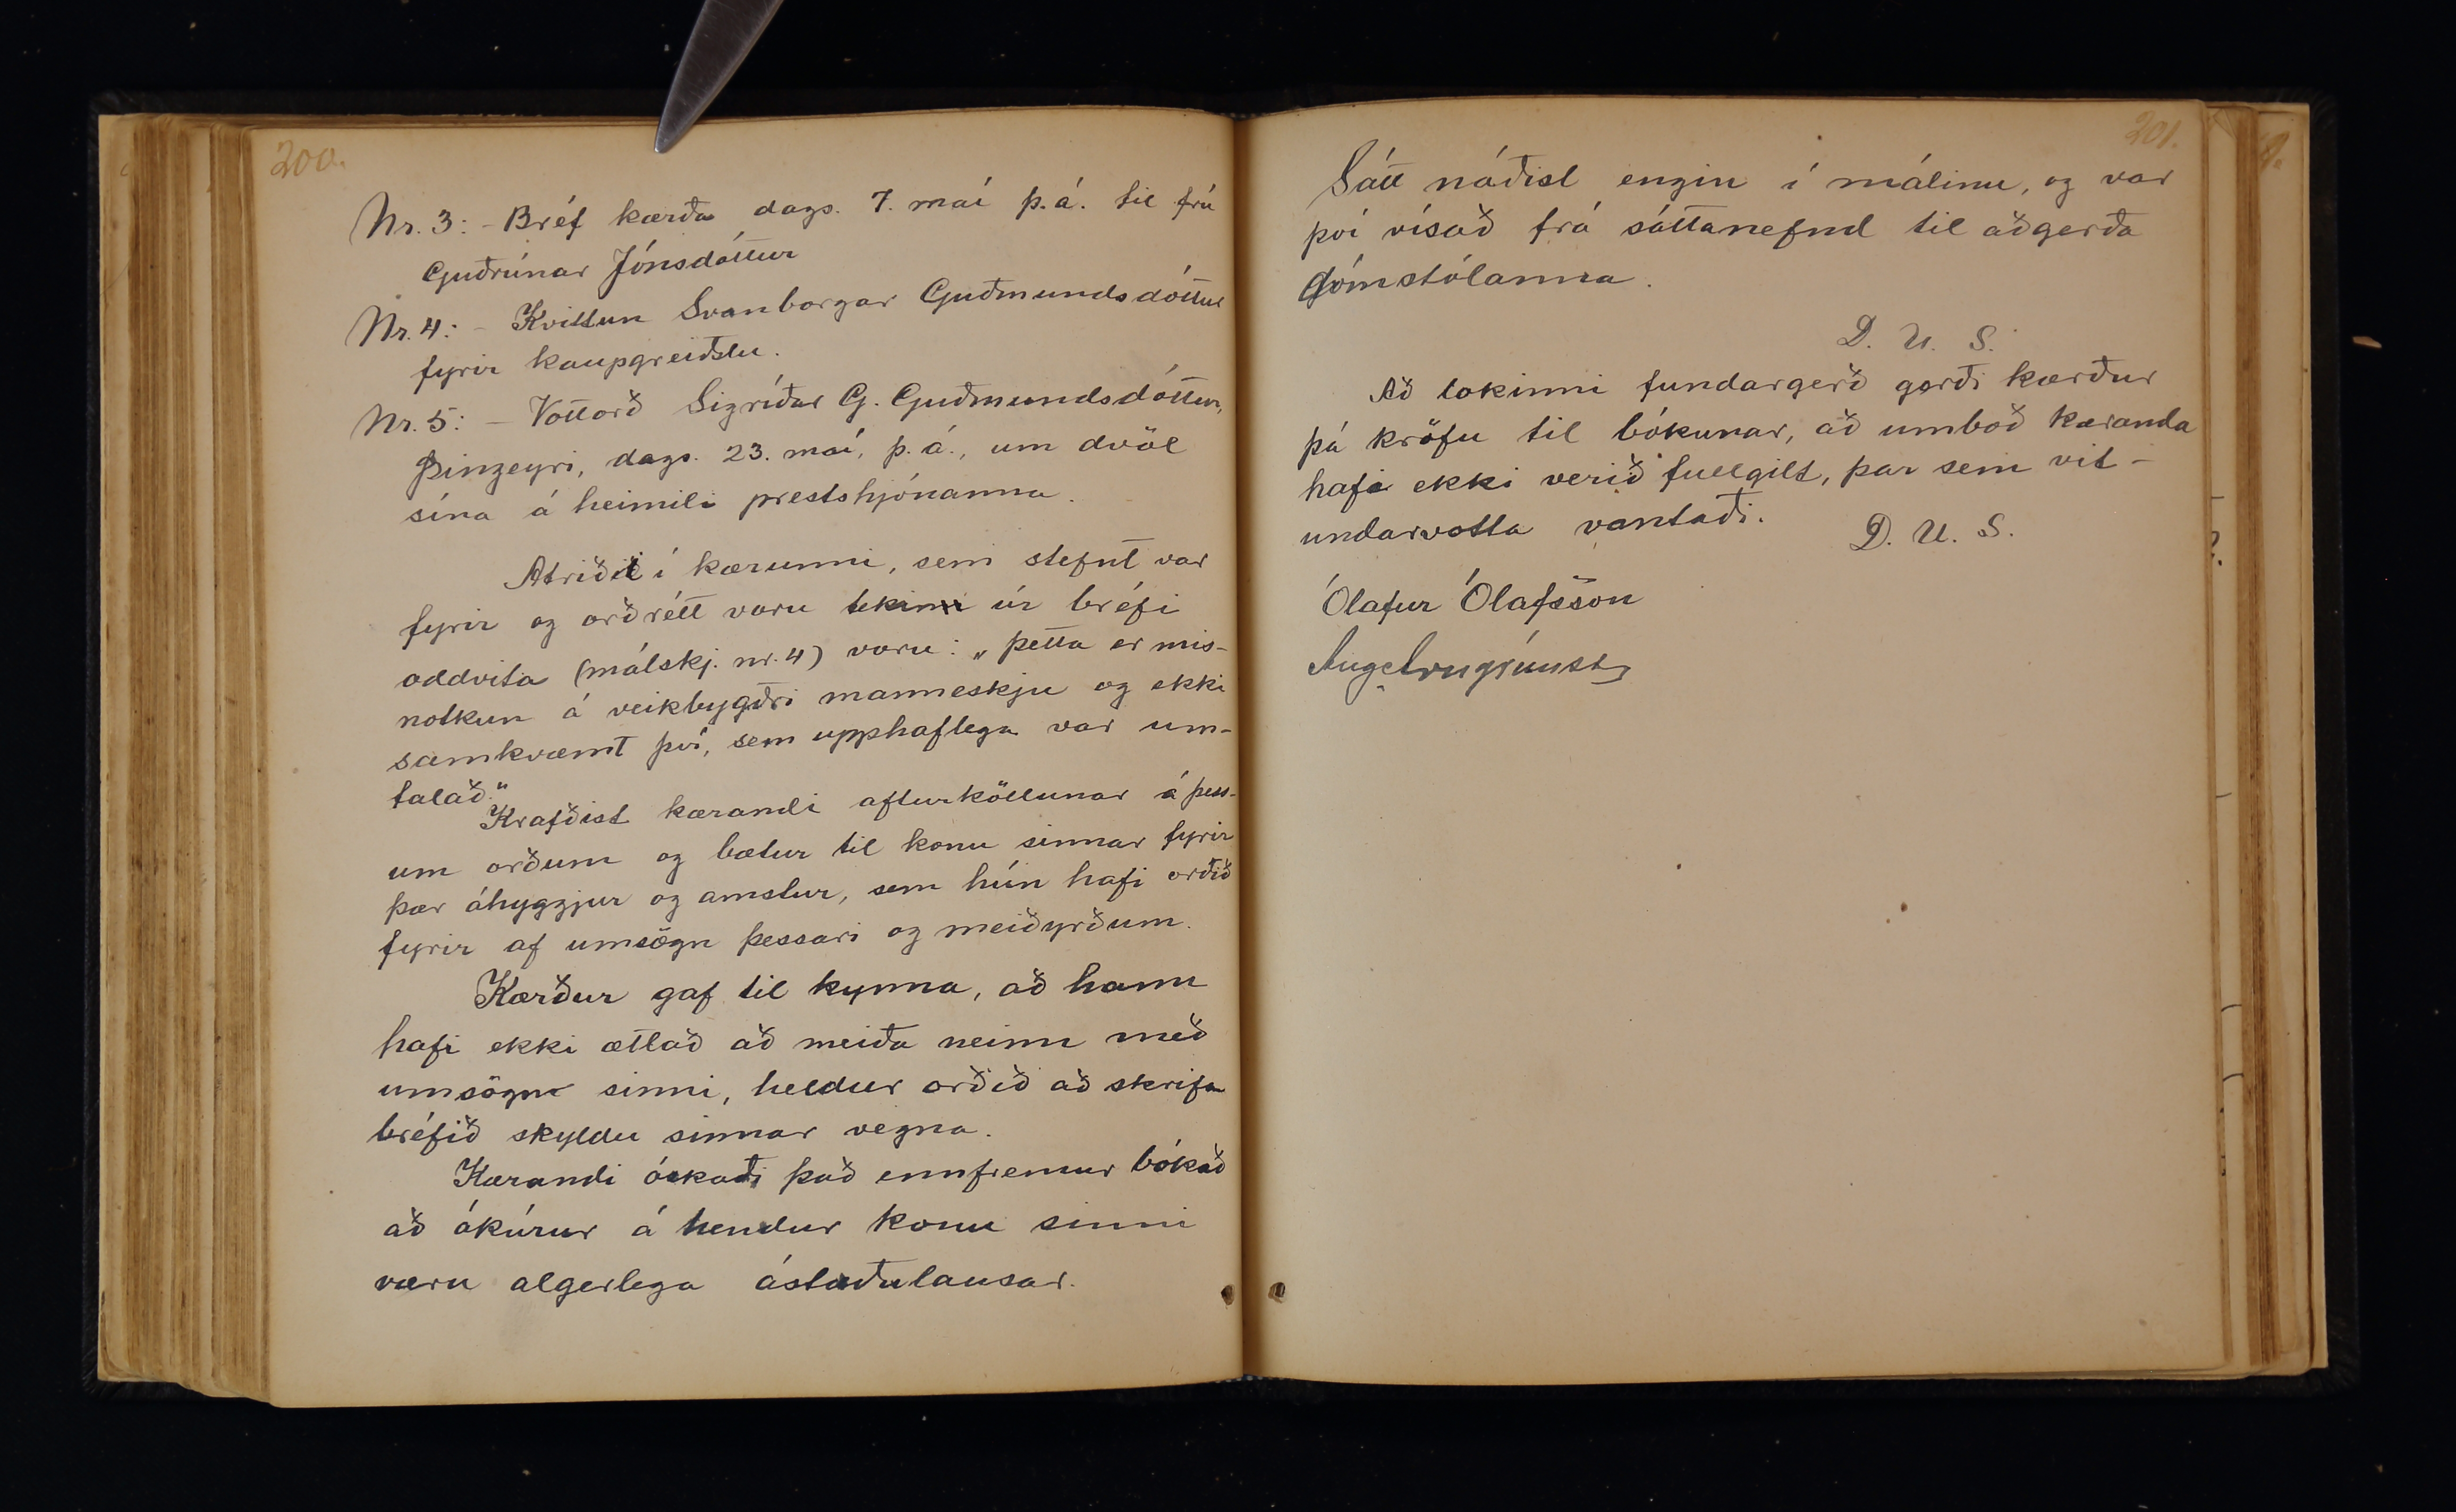 200.
Nr. 3: - Bréf kærða dags. 7. maí þ.á. til frú
Guðrúnar Jónsdóttur
Nr. 4: - Kvittun Svanborgar Guðmundsdóttur
fyrir kaupgreiðslu.
Nr. 5: - Vottorð Sigríðar G. Guðmundsdóttur,
Þingeyri, dags. 23. maí, þ.á., um dvöl
sína á heimili prestshjónanna.
Atriðið í kærunni, sem stefnt var
fyrir og orðrétt voru tekin úr bréfi
oddvita (málskj. nr. 4) voru: „Þetta er mis-
notkun á veikbygðri manneskju og ekki
samkvæmt því, sem upphaflega var um-
talað."
Krafðist kærandi afturköllunar á þess-
um orðum og bætur til konu sinnar fyrir
þær áhyggjur og amstur, sem hún hafi orðið
fyrir af umsögn þessari og meiðyrðum.
Kærður gaf til kynna, að hann
hafi ekki ætlað að meiða neinn með
umsögn sinni, heldur orðið að skrifa
bréfið skyldu sinnar vegna.
Kærandi óskaði það ennfremur bókað
að ákúrur á hendur konu sinni
væru algerlega ástæðulausar.
201.
Sátt náðist engin í málinu, og var
því vísað frá sáttanefnd til aðgerða
dómstólanna.
D. U. S.
Að lokinni fundargerð gerði kærður
þá kröfu til bókunar, að umboð kæranda
hafi ekki verið fullgilt, þar sem vit-
undarvotta vantaði.
D. U. S.
Ólafur Ólafsson